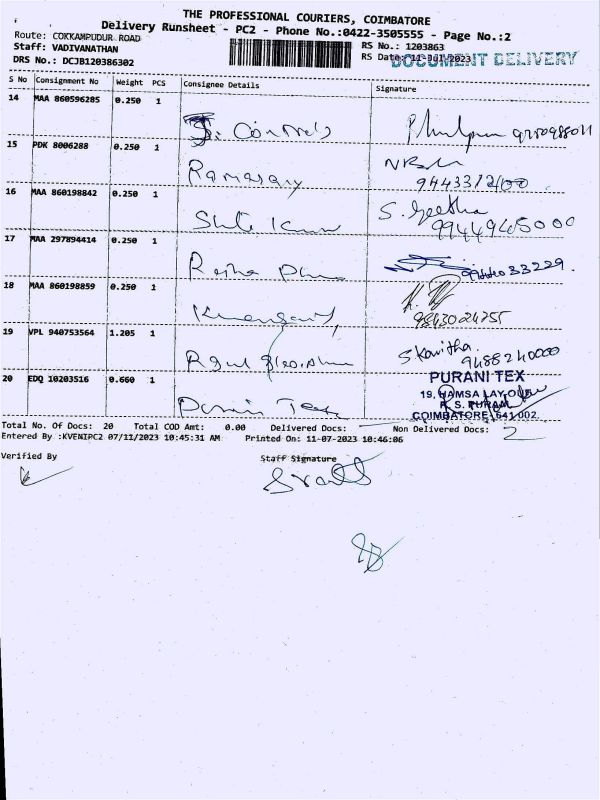 THE PROFESSIONAL COURIERS, COIMBATORE
Delivery Runsheet - PC2 - Phone No.:0422-3505555 - Page No.:2
Route: COKKAMPUDUR ROAD
Staff: VADIVANATHAN
RS No.: 1203863
DRS No.: DCJB120386302
RS Date: 11-Jul-2023
DOCUMENT DELIVERY
S No Consignment No Weight PCS Consignee Details Signature
14 MAA 860596285 0.250 1
15 PDK 8006288 0.250 1 Ramasamy
9443312400
16 MAA 860198842 0.250 1 S. Geetha
17 MAA 297894414 0.250 1
18 MAA 860198859 0.250 1
9843024755
19 VPL 940753564 1.205 1 S Kavitha.
9488240000
20 EDQ 10203516 0.660 1 Purani Tex
PURANI TEX
19, HAMSA LAY-OUT
R. S. PURAM
COIMBATORE 641 002.
Total No. Of Docs: 20 Total COD Amt: 0.00 Delivered Docs: Non Delivered Docs: 2
Entered By :KVENIPC2 07/11/2023 10:45:31 AM Printed On: 11-07-2023 10:46:06
Verified By Staff Signature